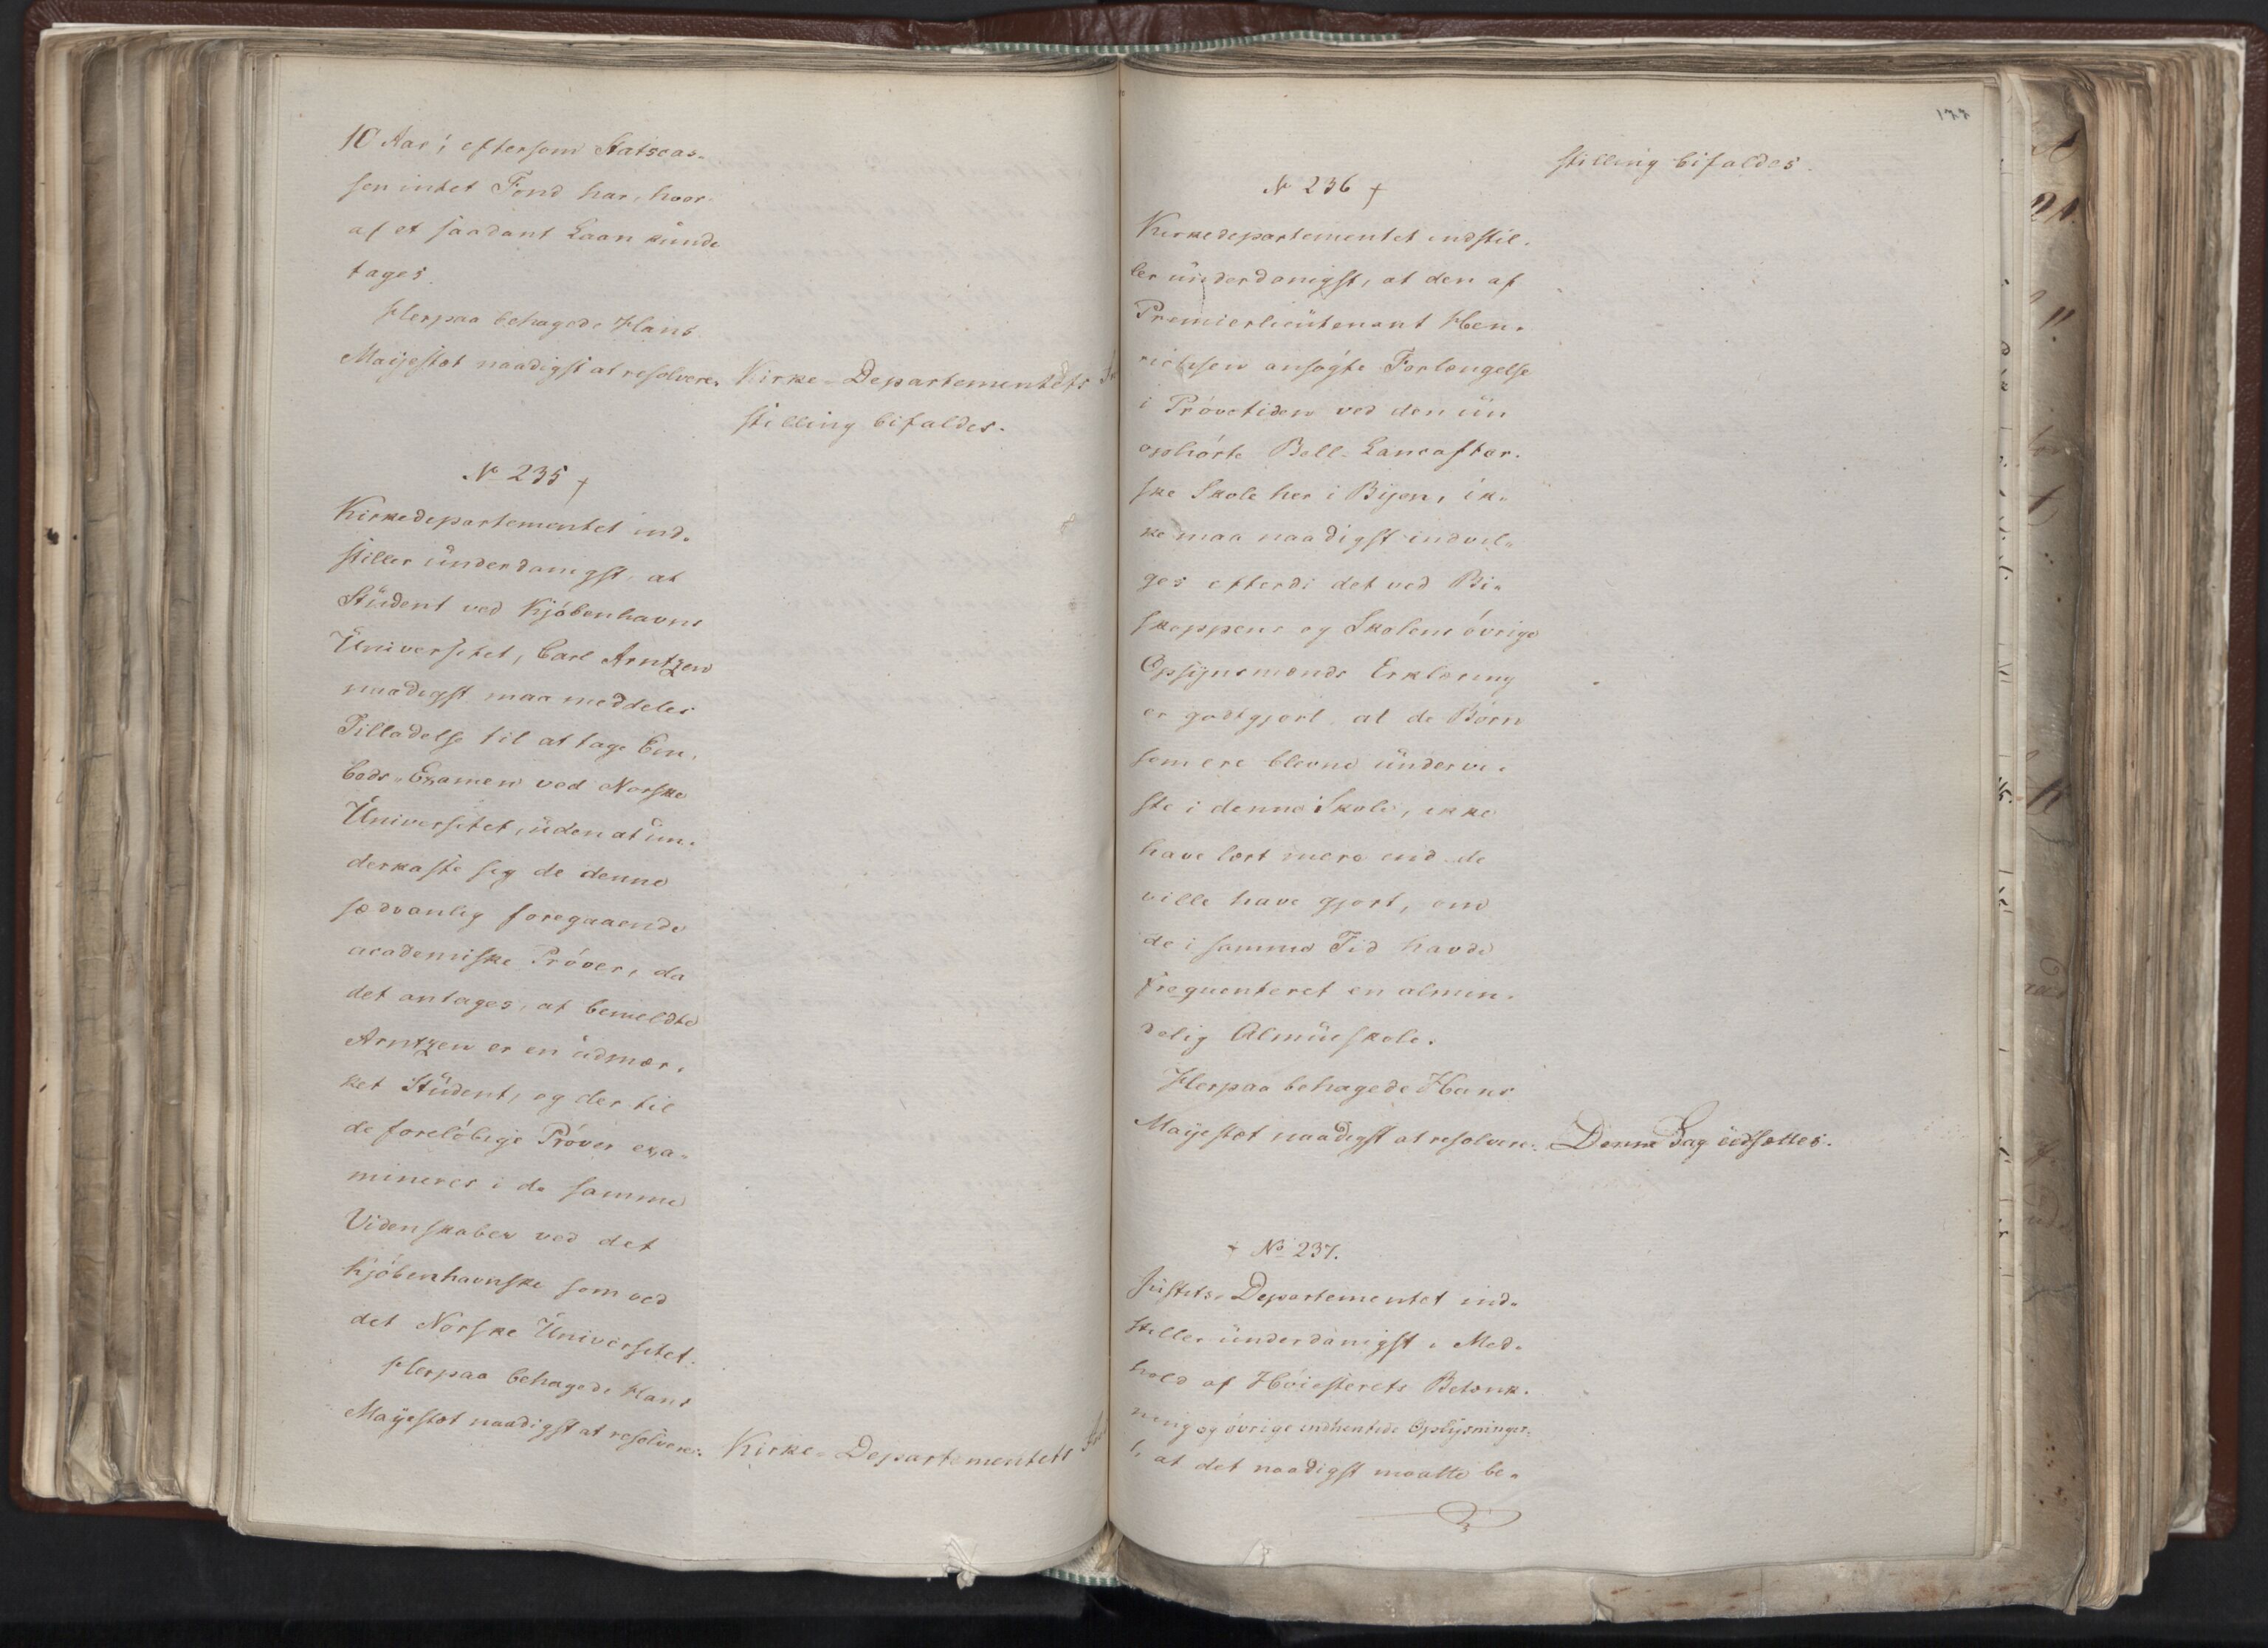 10 Aar; eftersom Statscas-
sen intet Fond har, hvor-
af et saadant Laan kunde
tages.
Herpaa behagede Hans
Majestæt naadigst at resolvere:
Kirke-Departementets In
stilling bifaldes.
No 235 †
Kirkedepartementet ind-
stiller underdanigst, at
Student ved Kjøbenhavns
Universitet, Carl Arntzen
naadigst maa meddeles
Tilladelse til at tage Em-
beds-Examen ved Norske
Universitet, uden at un-
derkaste sig de denne
sædvanlig foregaaende
academiske Prøver, da
det antages, at bemeldte
Arntzen er en udmær-
ket Student, og der til
de foreløbige Prøver exa-
mineres i de samme
Videnskaber ved det
Kjøbenhavnske som ved
det Norske Universitet.
Herpaa behagede Hans
Majestæt naadigst at resolvere:
Kirke-Departementets Ind
177
stilling bifaldes.
No 236 †
Kirkedepartementet indstil-
ler underdanigst, at den af
Premierlieutenant Hen-
richsen ansøgte Forlængelse
i Prøvetiden ved den nu
ophørte Bell-Lancaster-
ske Skole her i Byen, ik-
ke maa naadigst indvil-
ges efterdi det ved Bi-
skoppens og Skolens øvrige
Opsynsmænds Erklæring
er godtgjort, at de Børn
som ere blevne undervi-
ste i denne Skole, ikke
have lært mere end de
ville have gjort, om
de i samme Tid havde
frequenteret en almin-
delig Almueskole.
Herpaa behagede Hans
Majestæt naadigst at resolvere:
Denne Sag udsættes.
† No 237.
Justits-Departementet ind-
stiller underdanigst i Med-
hold af Høiesterets Betænk-
ning og øvrige indhentede Oplysninger,
at det naadigst maatte be-